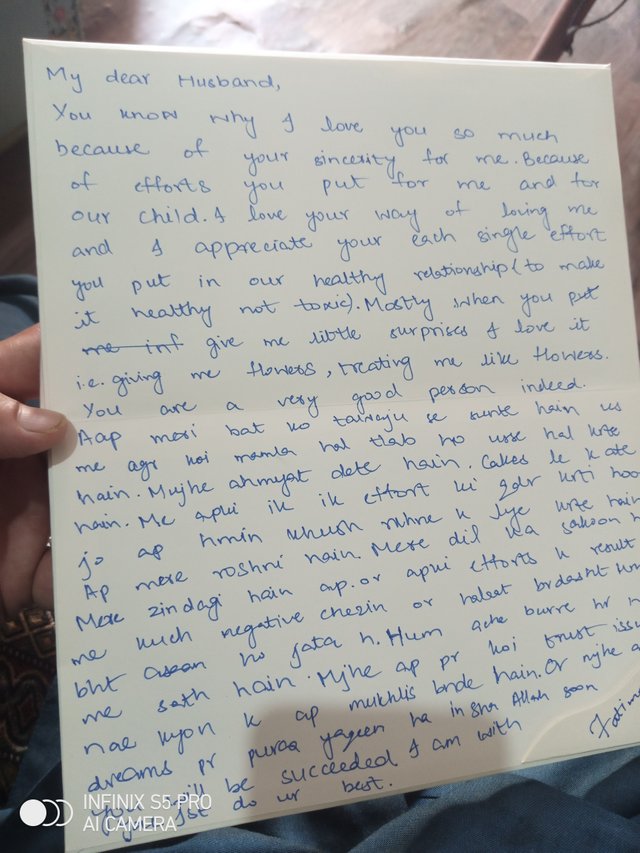 My dear Husband,
You know why I love you so much
because of your sincerity for me. Because
of efforts you put for me and for
our child. I love your way of loving me
and I appreciate your each single effort
you put in our healthy relationship (to make
it healthy not toxic). Mostly when you put
me inf give me little surprises I love it
i.e. giving me flowers, treating me like flowers.
You are a very good person indeed.
Aap meri bat ko tawaju se sunte hain us
me agr koi mamla hal tlab ho usse hal krte
hain. Mujhe ahmyat dete hain. Cakes le k ate
hain. Me apki ik ik effort ki qdr krti hoo
jo ap hmin khush rkhne k lye krte hain
Ap mere roshni hain. Mere dil ka sakoon h
Mere zindagi hain ap. or apki efforts k result
me kuch negative chezin or halaat brdasht krn
bht asaan ho jata h. Hum ache burre hr h
me sath hain. Mjhe ap pr koi trust issu
nae kyon k ap mukhlis bnde hain. Or mjhe a
dreams pr puraa yaqeen ha in sha Allah soon
you will be succeeded I am with
you. Jst do ur best.
Fatim
INFINIX S5 PRO
AI CAMERA